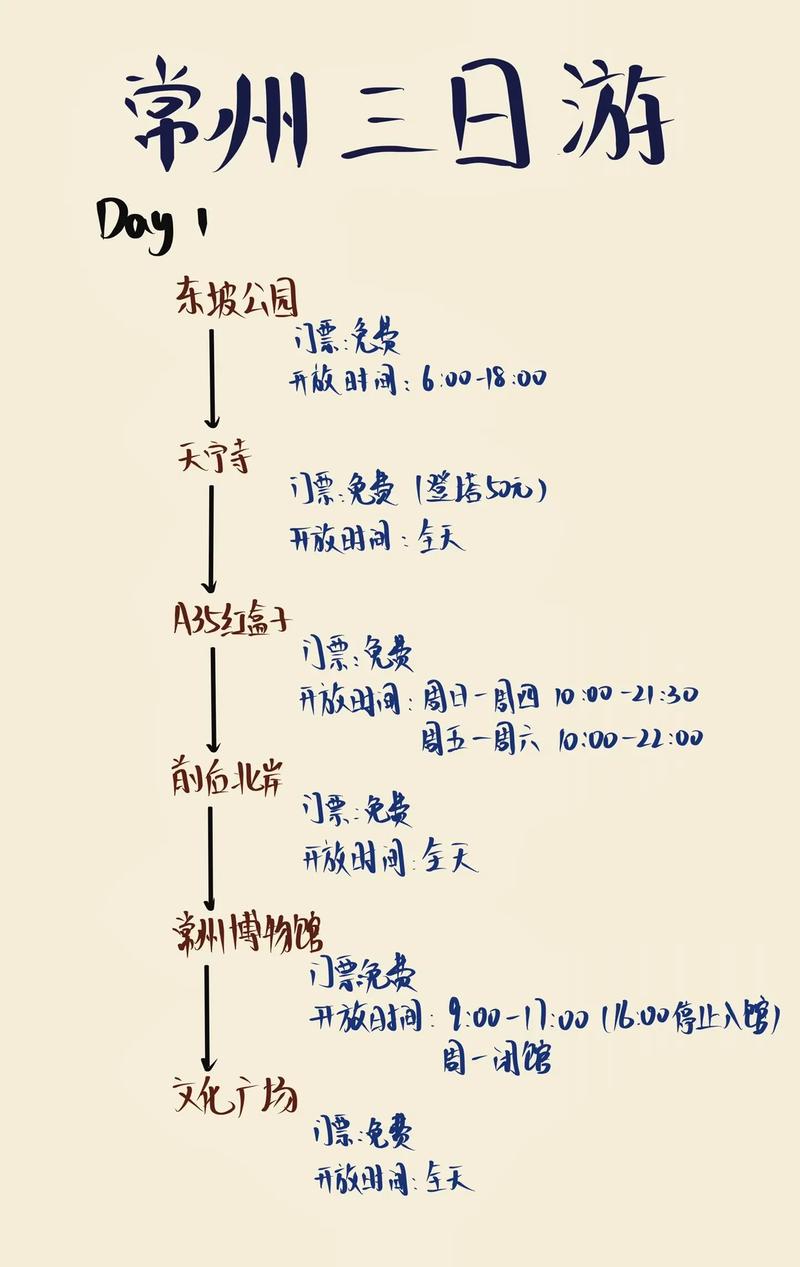 常州三日游
Day 1
东坡公园
门票:免费
开放时间:6:00-18:00
天宁寺
门票:免费(登塔50元)
开放时间:全天
A35红盒子
门票:免费
开放时间:周日一周四 10:00-21:30
周五一周六 10:00-22:00
前后北岸
门票:免费
开放时间:全天
常州博物馆
门票:免费
开放时间:9:00-17:00(16:00停止入馆)
周一闭馆
文化广场
门票:免费
开放时间:全天